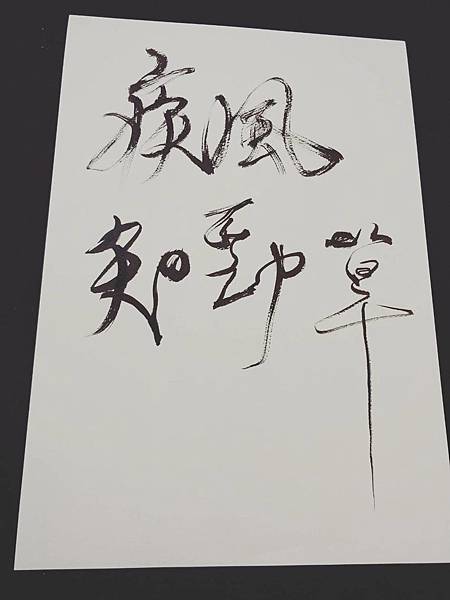 疾風
知勁草